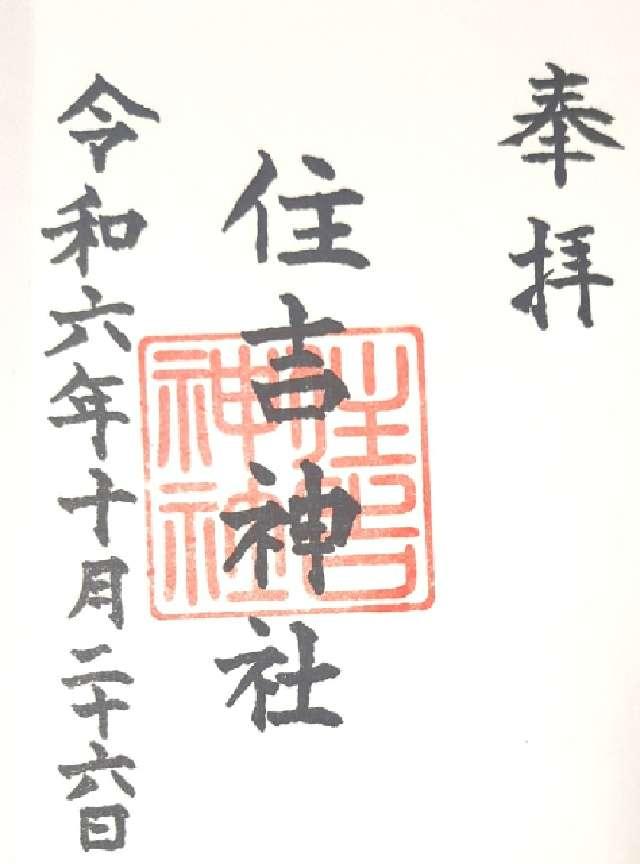 奉拝
住吉神社
令和六年十月二十六日
住吉神社